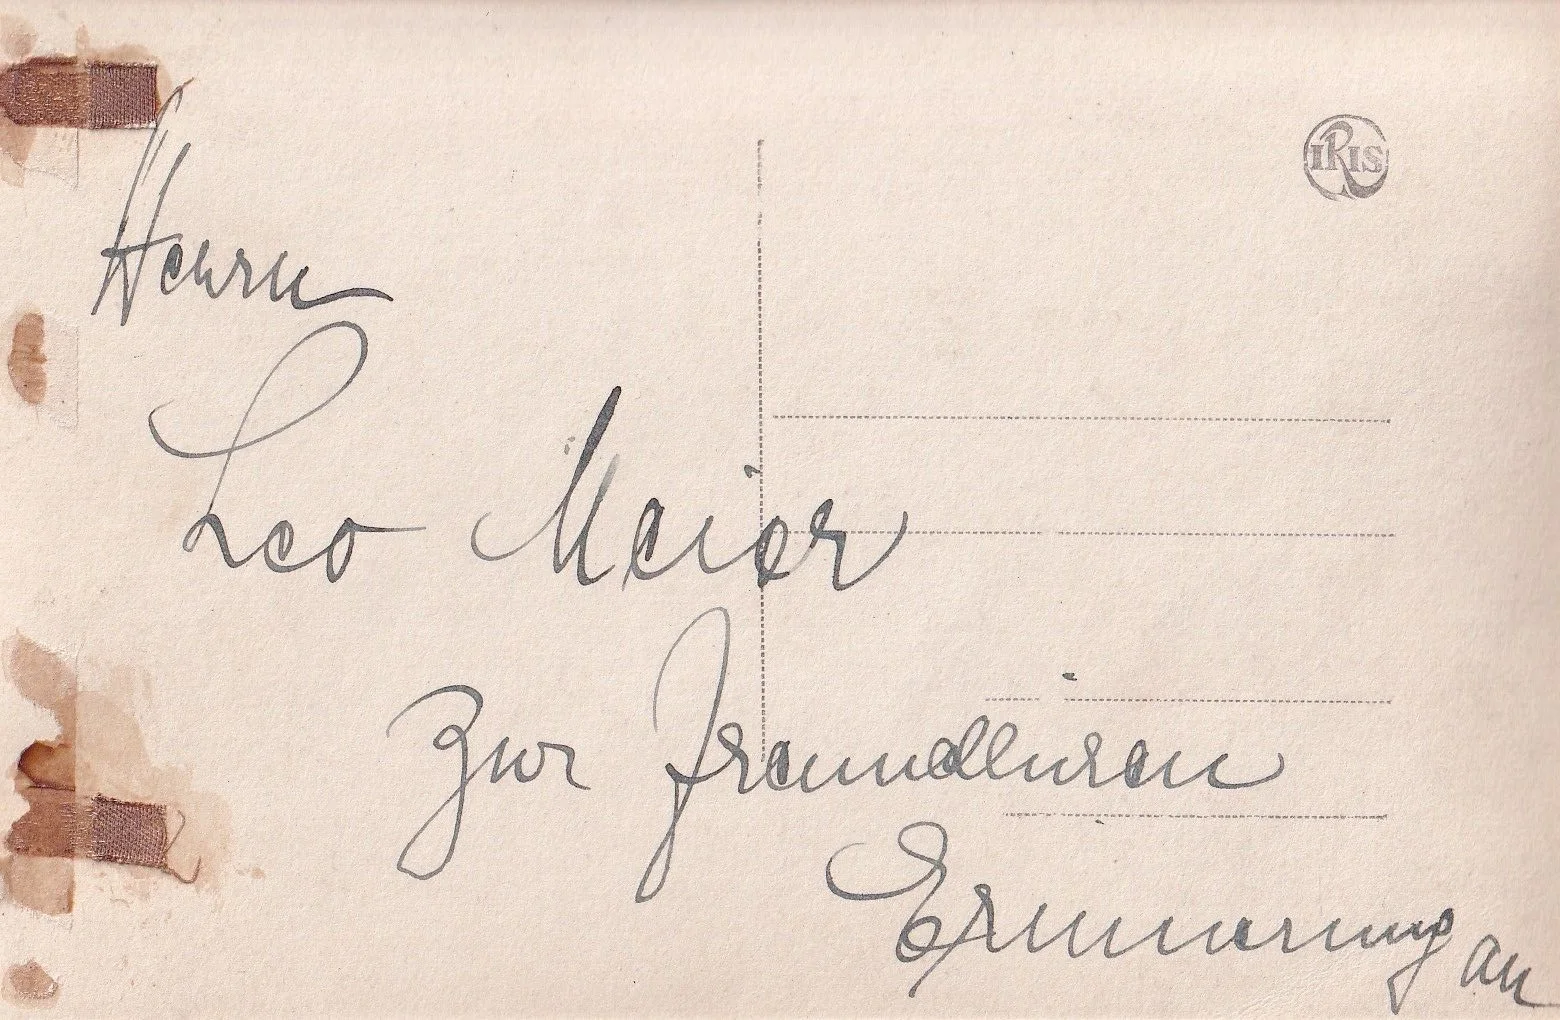 IRIS
Herrn
Leo Meier
Zur Freundlichen
Erinnerung an